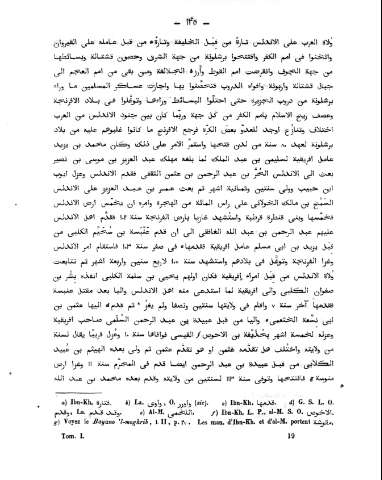 — ١٤٥ —
ولاة العرب على الاندلس تارة من قِبَل الخليفة وتارة من قبل عامله على القيروان
واثخنوا فى امم الكفر وافتتحوا برشلونة من جهة الشرق وحصون قشتالة وبسائطها
من جهة الجوف وانقرضت امم القوط وأرز الجلالقة ومن بقى من امم العجم الى
جبال قشتالة واربونة وافواه الدروب فتحصنوا بها واجازت عساكر المسلمين ما وراء
برشلونة من دروب الجزيرة حتى احتلوا البسائط وراءها وتوغلوا فى بلاد الافرنجة
وعصفت ريح الاسلام بامم الكفر من كل جهة وربما كان بين جنود الاندلس من العرب
اختلاف وتنازع اوجد للعدو بعض الكرة فرجع الافرنج ما كانوا غلبوهم عليه من بلاد
برشلونة لعهد ٨٠ سنة من لدن فتحها واستمر الامر على ذلك وكان محمد بن يزيد
عامل افريقية لسليمن بن عبد الملك لما بلغه مهلك عبد العزيز بن موسى بن نصير
بعث الى الاندلس الحر بن عبد الرحمن بن عثمن الثقفى فقدم الاندلس وعزل ايوب
ابن حبيب وولى سنتين وثمانية اشهر ثم بعث عمر بن عبد العزيز على الاندلس
السمح بن مالك الخولانى على راس المائة من الهجرة وامره ان يخمس ارض الاندلس
فخمسها وبنى قنطرة قرطبة واستشهد غازيا بارض الفرنجة سنة ١٠٢ فقدم اهل الاندلس
عليهم عبد الرحمن بن عبد الله الغافقى الى ان قدم عنبسة بن سحيم الكلبى من
قبل يزيد بن ابى مسلم عامل افريقية فقدمها فى صفر سنة ١٠٣ فاستقام امر الاندلس
وغزا الفرنجة وتوغل فى بلادهم واستشهد سنة ١٠٧ لاربع سنين واربعة اشهر ثم تتابعت
ولاة الاندلس من قبل امراء افريقية فكان اولهم يحيى بن سلمة الكلبى انفذه بشر بن
صفوان الكلبى والى افريقية لما استدعى منه اهل الاندلس واليا بعد مقتل عنبسة
فقدمها آخر سنة ٧ واقام فى ولايتها سنتين ونصفا ولم يغز ثم قدم اليها عثمن بن
ابى نسعة الخثعمى واليا من قبل عبيدة بن عبد الرحمن السلمى صاحب افريقية
وعزله لخمسة اشهر بحذيفة بن الاحوص القيسى فوافاها سنة ١٠ وعزل قريبا يقال لسنة
من ولايته واختلف هل تقدمه عثمن او هو تقدم عثمن ثم ولى بعده الهيثم بن عبيد
الكلابى من قبل عبيدة بن عبد الرحمن ايضا قدم فى المحرم سنة ١١ وغزا ارض
منوسة فافتتحها وتوفى سنة ١٣ لسنتين من ولايته وقدم بعده محمد بن عبد الله
a) Ibn-Kh. فتارة. b) La. وآوى, O. وأزور (sic). c) Ibn-Kh. قدمها. d) G. S. L. O.
وقدم, La. وبعد قدم. e) Al-M. اللخمى. f) Ibn-Kh. L. P., al-M. S. O. الاخوص.
g) Voyez le Bayano 'l-maghrib, t. II, p. ٢٧. Les man. d'Ibn-Kh. et d'al-M. portent مقوشة.
Tom. I. 19